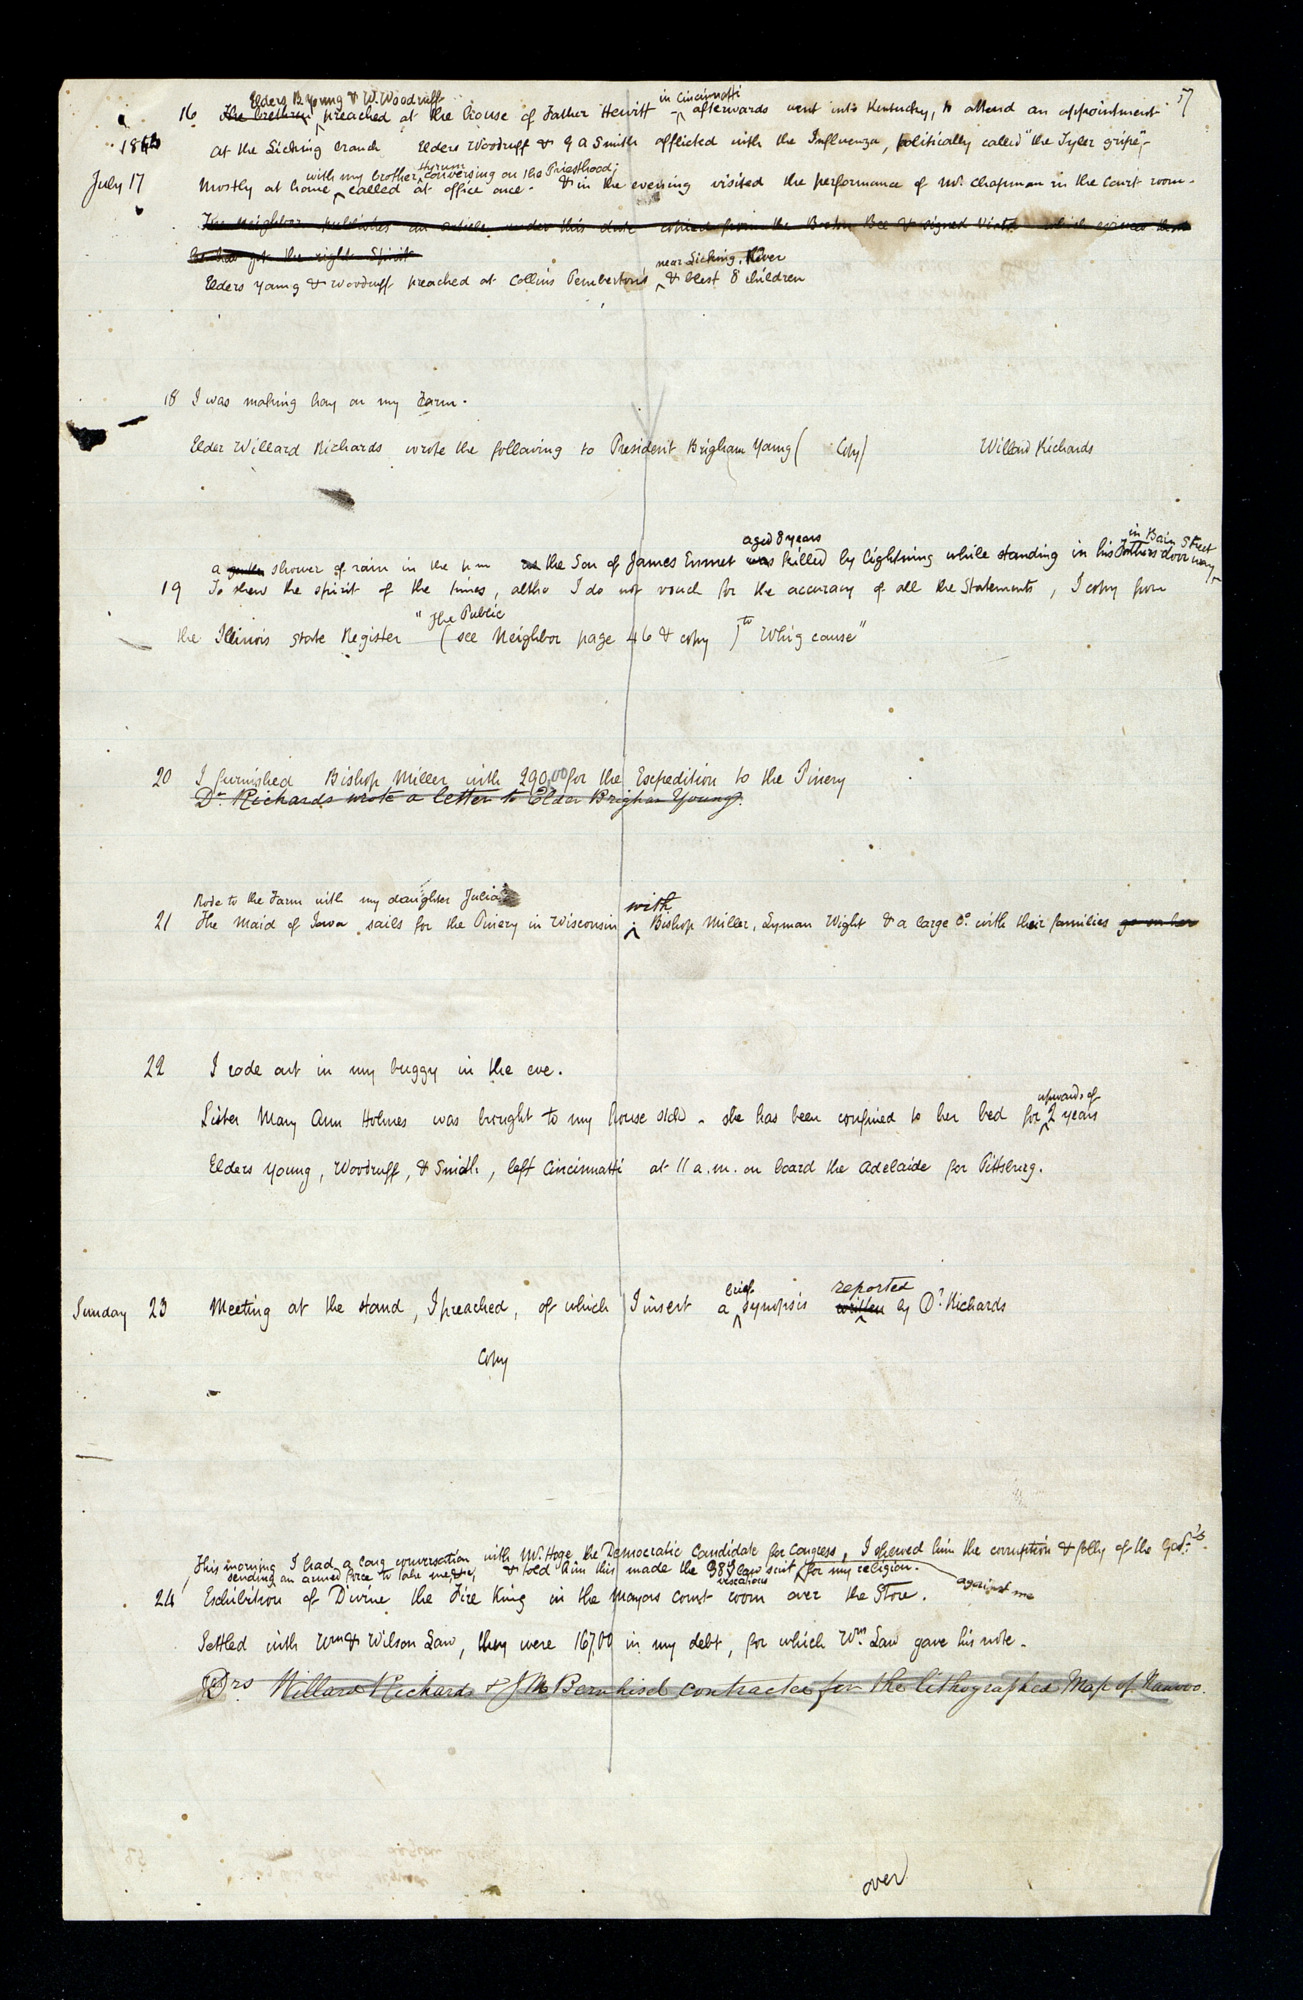 57
Elders B Young & W. Woodruff in Cincinnatti
16 The brethren preached at the house of Father Hewitt afterwards went into Kentucky, to attend an appointment
1843 at the Licking branch Elders Woodruff & G A Smith afflicted with the Influenza, politically called "the Tyler gripe"-
with my brother Hyrum conversing on the Priesthood;
July 17 Mostly at home called at office once. & in the evening visited the performance of Mr. Chapman in the Court room.
The Neighbor publishes an article under this date copied from the Boston Bee & signed which evinces that
he has got the right Spirit
near Licking River
Elders Young & Woodruff preached at Collins Pemberton's & blest 8 children
18 I was making hay on my Farm.
Elder Willard Richards wrote the following to President Brigham Young ( Copy) Willard Richards
aged 8 years in Bain Street
a gentle shower of rain in the p.m the Son of James Emmet was killed by lightning while standing in his Fathers door way,
19 To shew the spirit of the times, altho I do not vouch for the accuracy of all the Statements, I copy from
"The Public
the Illinois State Register (see Neighbor page 46 & copy ) to Whig cause"
20 I furnished Bishop Miller with 290.00 for the Expedition to the Pinery
Dr. Richards wrote a letter to Elder Brigham Young.
Rode to the Farm with my daughter Julia
with
21 The Maid of Iowa sails for the Pinery in Wisconsin Bishop Miller, Lyman Wight & a large Co. with their families go on her
22 I rode out in my buggy in the eve.
upwards of
Sister Mary Ann Holmes was brought to my house sick. she has been confined to her bed for 2 years
Elders Young, Woodruff, & Smith, left Cincinnatti at 11 a.m. on board the Adelaide for Pittsburg.
brief reported
Sunday 23 Meeting at the stand, I preached, of which I insert a synopsis written by Dr. Richards
Copy
This morning I had a long conversation with Mr. Hoge the Democratic Candidate for Congress, I shewed him the corruption & folly of the Govr. in
sending an armed force to take me &c, & told him this made the 38th law suit for my religion.
vexatious against me
24 Exhibition of Divine the Fire King in the Mayors court room over the Store.
Settled with Wm. & Wilson Law, they were 167.00 in my debt, for which Wm. Law gave his note.
Drs Willard Richards & J M Bernhisel contracted for the lithographed Map of Nauvoo.
over